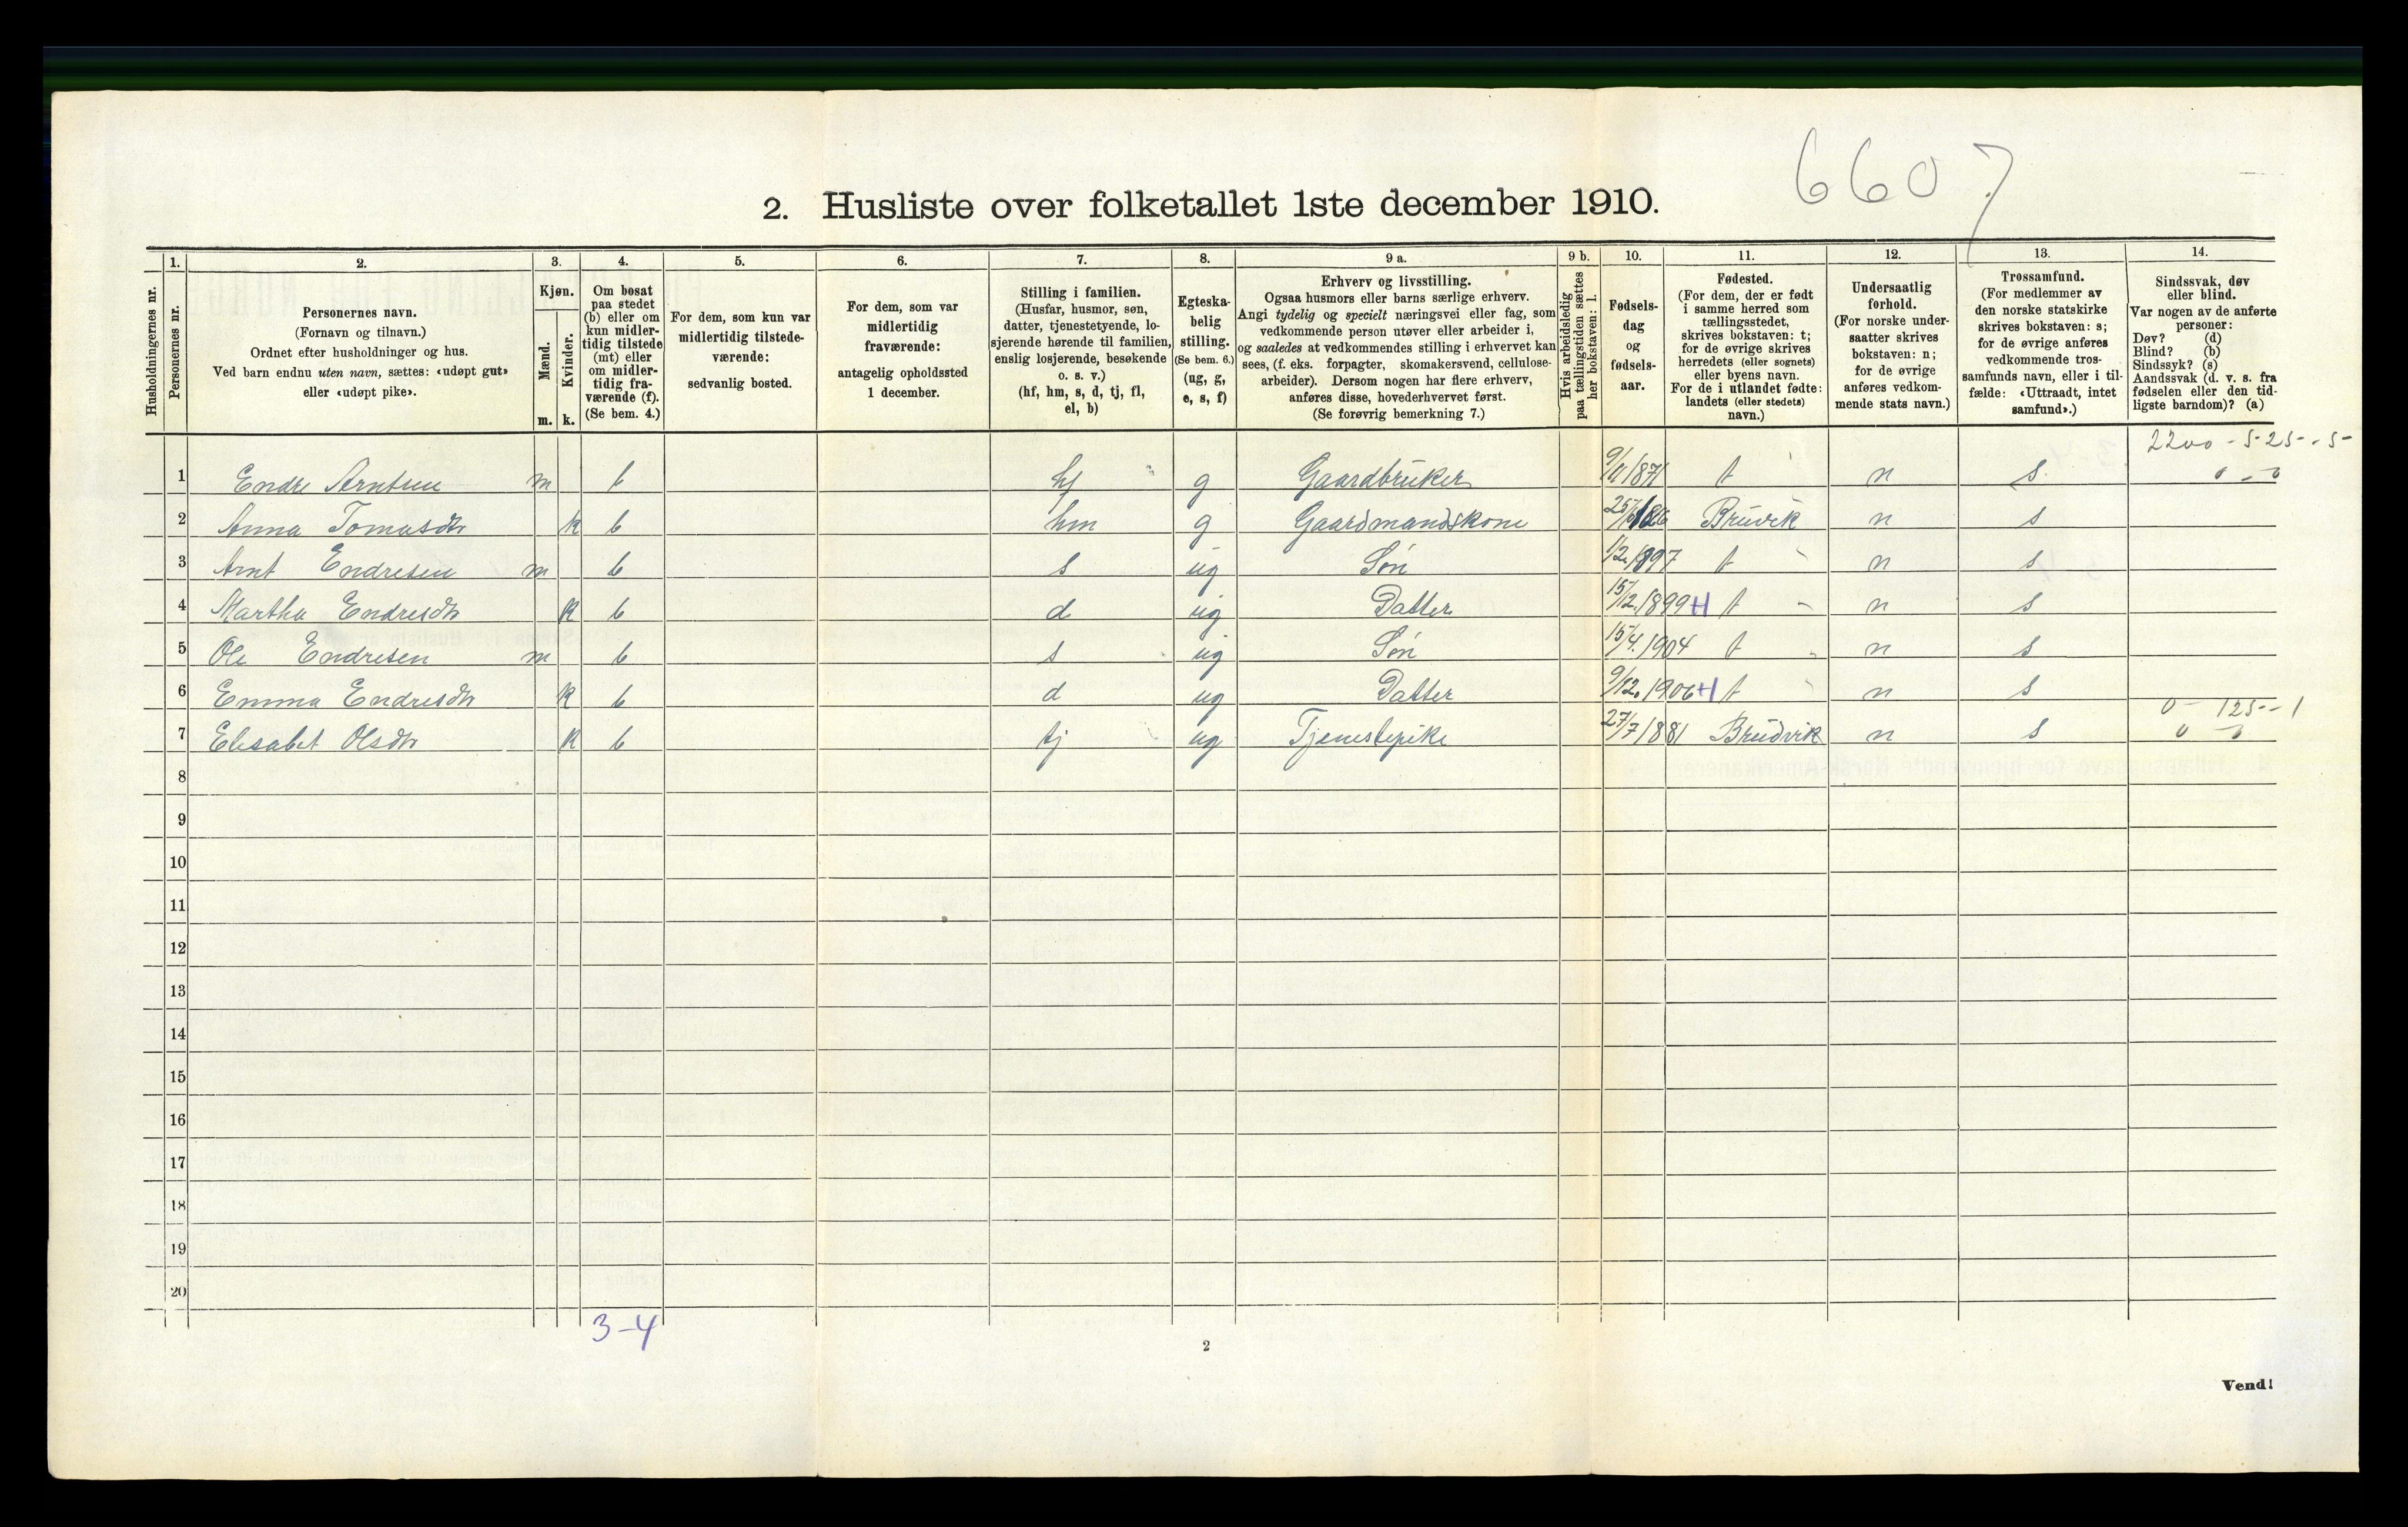 6607
2. Husliste over folketallet 1ste december 1910.
Husholdningernes nr.
1. Personernes nr.
2. Personernes navn.
(Fornavn og tilnavn.)
Ordnet efter husholdninger og hus.
Ved barn endnu uten navn, sættes: «udøpt gut»
eller «udøpt pike».
3. Kjøn.
Mænd. m.
Kvinder. k.
4. Om bosat
paa stedet
(b) eller om
kun midler-
tidig tilstede
(mt) eller
om midler-
tidig fra-
værende (f).
(Se bem. 4.)
5. For dem, som kun var
midlertidig tilstede-
værende:
sedvanlig bosted.
6. For dem, som var
midlertidig
fraværende:
antagelig opholdssted
1 december.
7. Stilling i familien.
(Husfar, husmor, søn,
datter, tjenestetyende, lo-
sjerende hørende til familien,
enslig losjerende, besøkende
o. s. v.)
(hf, hm, s, d, tj, fl,
el, b)
8. Egteska-
belig
stilling.
(Se bem. 6.)
(ug, g,
e, s, f)
9 a. Erhverv og livsstilling.
Ogsaa husmors eller barns særlige erhverv.
Angi tydelig og specielt næringsvei eller fag, som
vedkommende person utøver eller arbeider i,
og saaledes at vedkommendes stilling i erhvervet kan
sees, (f. eks. forpagter, skomakersvend, cellulose-
arbeider). Dersom nogen har flere erhverv,
anføres disse, hovederhvervet først.
(Se forøvrig bemerkning 7.)
9 b. Hvis arbeidsledig
paa tællingstiden sættes
her bokstaven: l.
10. Fødsels-
dag
og
fødsels-
aar.
11. Fødested.
(For dem, der er født
i samme herred som
tællingsstedet,
skrives bokstaven: t;
for de øvrige skrives
herredets (eller sognets)
eller byens navn.
For de i utlandet fødte:
landets (eller stedets)
navn.)
12. Undersaatlig
forhold.
(For norske under-
saatter skrives
bokstaven: n;
for de øvrige
anføres vedkom-
mende stats navn.)
13. Trossamfund.
(For medlemmer av
den norske statskirke
skrives bokstaven: s;
for de øvrige anføres
vedkommende tros-
samfunds navn, eller i til-
fælde: «Uttraadt, intet
samfund».)
14. Sindssvak, døv
eller blind.
Var nogen av de anførte
personer:
Døv? (d)
Blind? (b)
Sindssyk? (s)
Aandssvak (d. v. s. fra
fødselen eller den tid-
ligste barndom)? (a)
2200 - 5-25 - 5-
1 Endre Arntsen m b hf g Gaardbruker 9/11 1871 t n s 0 - 0
2 Anna Tomasdtr k b hm g Gaardmandskone Bruvik n s
3 Arnt Endresen m b s ug Søn 1/2 1897 t n s
4 Martha Endresdtr k b d ug Datter 15/12 1899 H t n s
5 Ole Endresen m b s ug Søn 15/4 1904 t n s
6 Emma Endresdtr k b d ug Datter 9/12 1906 H t n s
0 - 125 - 1
7 Elisabet Olsdtr k b tj ug Tjenestepike 27/7 1881 Brudvik n s 0 - 0
8
9
10
11
12
13
14
15
16
17
18
19
20
3-4
2
Vend!